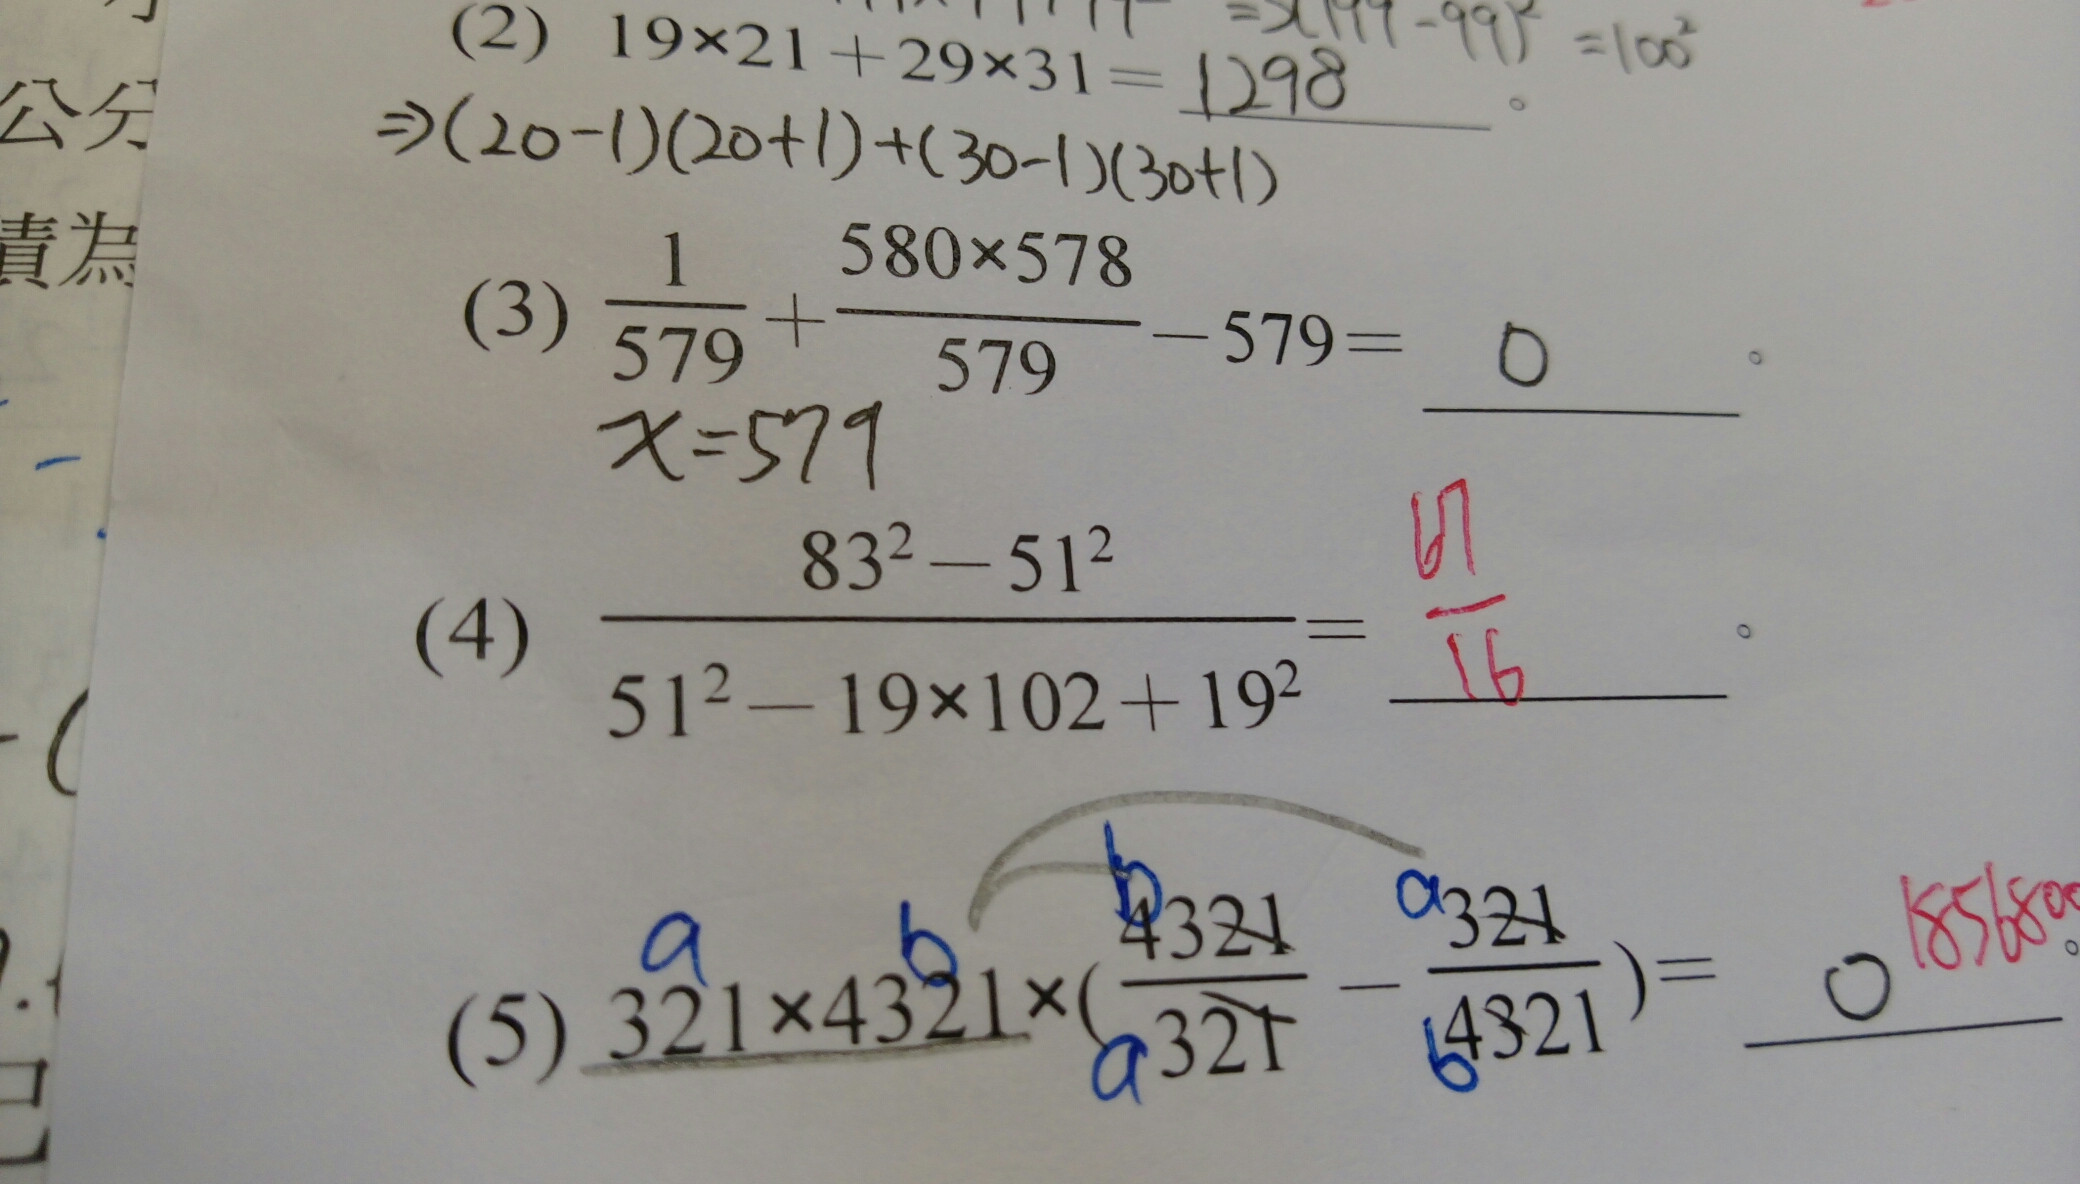 =100²
(2) 19×21+29×31= 1298 。
⇒(20-1)(20+1)+(30-1)(30+1)
公分
(3) 1/579 + 580×578/579 −579= 0 。
積為
x=579
(4) 83²−51² / 51²−19×102+19² = 67/16 。
(5) 321×4321×(4321/321 − 321/4321)= 0 。
a b b a a b